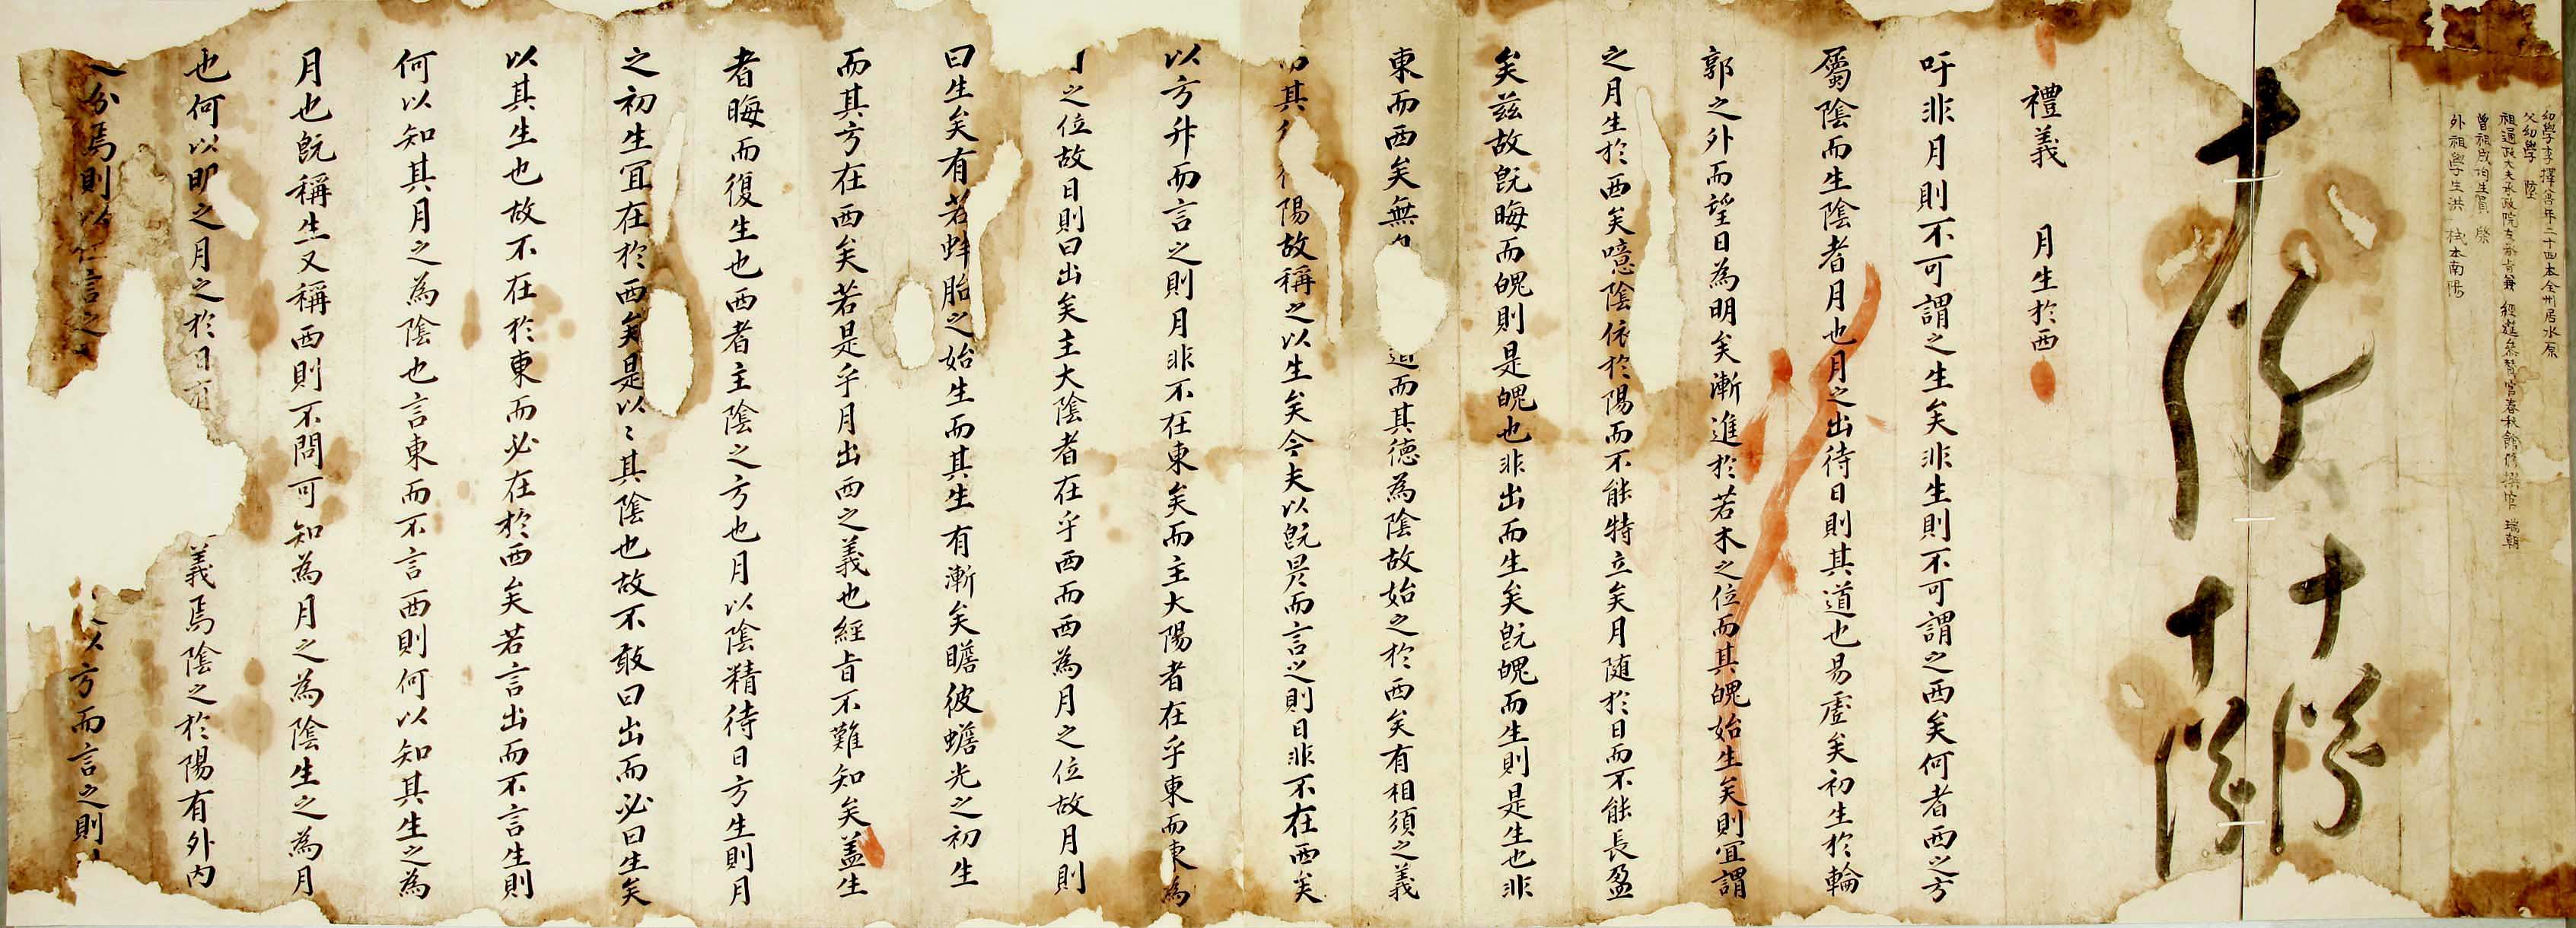 幼學李擇 年二十四本全州居水原
父幼學 蔭
祖通政大夫承政院 承旨兼 經筵參贊官春秋館修撰官 瑞朝
曾祖成均生員 榮
外祖學生洪 栻本南陽
禮義 月生於西
吁非月則不可謂之生矣非生則不可謂之西矣何者西之方
屬陰而生陰者月也月之出待日則其道也易虛矣初生於輪
郭之外而望日為明矣漸進於若木之位而其魄始生矣則宜謂
之月生於西矣噫陰依於陽而不能特立矣月随於日而不能長盈
矣玆故旣晦而魄則是魄也非出而生矣旣魄而生則是生也非
東而西矣無 而其德為陰故始之於西矣有相須之義
其 陽故稱之以生矣今夫以旣昃而言之則日非不在西矣
以方升而言之則月非不在東矣而主大陽者在乎東而東為
之位故日則曰出矣主大陰者在乎西而西為月之位故月則
曰生矣有若蚌胎之始生而其生有漸矣瞻彼蟾光之初生
而其方在西矣若是乎月出西之義也經旨不難知矣盖生
者晦而復生也西者主陰之方也月以陰精待日方生則月
之初生宜在於西矣是以〻其陰也故不敢曰出而必曰生矣
以其生也故不在於東而必在於西矣若言出而不言生則
何以知其月之為陰也言東而不言西則何以知其生之為
月也旣稱生又稱西則不問可知為月之為陰生之為月
也何以明之月之於日有 義焉陰之於陽有外内
分焉則以 言之 以方而言之則